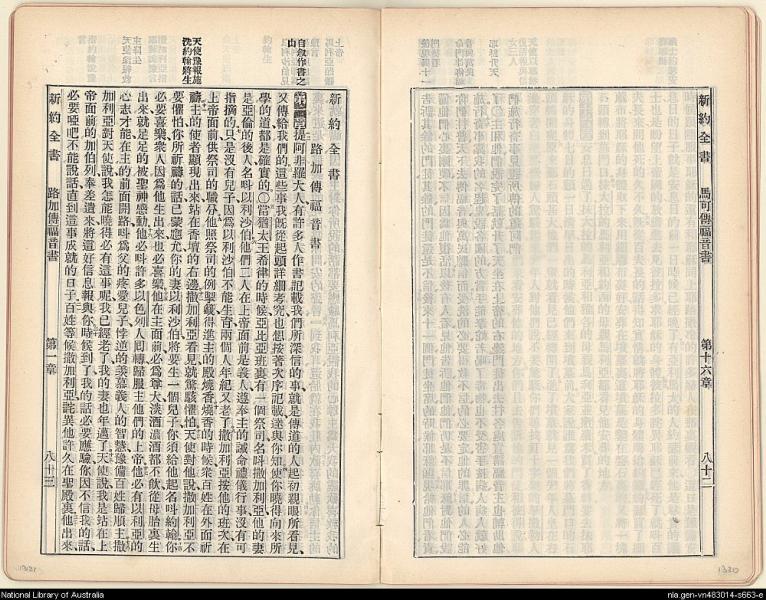 新約全書 馬可傳福音書 第十六章 八十二
新約全書
路加傳福音書
自敘作書之
由
天使豫報施
洗約翰將生
提阿非羅大人有許多人作書記載我們所深信的事就是傳道的人起初親眼所看見
又傳給我們的這些事我既從起頭詳細考究也想按著次序記載達與你知使你曉得向來所
學的道都是確實的〇當猶太王希律的時候亞比亞班裏有一個祭司名叫撒加利亞他的妻
是亞倫的後人名叫以利沙伯他們二人在上帝面前是義人遵奉主的誡命禮儀行事沒有可
指摘的只是沒有兒子因為以利沙伯不能生育兩個人年紀又老了撒加利亞按他的班次在
上帝面前供祭司的職分他照祭司的例掣籤得進主的殿燒香燒香的時候衆百姓在外面祈
禱主的使者顯現出來站在香壇的右邊撒加利亞看見就驚駭懼怕天使對他說撒加利亞不
要懼怕你所祈禱的話已蒙應允你的妻以利沙伯將要生一個兒子你須給他起名叫約翰你
必要喜樂衆人因為他生出來也必喜樂他在主面前必為尊大淡酒濃酒都不飲從母胎裏生
出來就是足足的被聖神感動他必叫許多以色列人即轉歸服主他們的上帝他必有以利亞的
心志才能在主的前面開路叫為父的疼愛兒子悖逆的羡慕義人的智慧豫備百姓歸順主撒
加利亞對天使說我怎能曉得必有這事呢我已經老了我的妻也年邁了天使說我是站在上
帝面前的加伯列奉差遣來將這好信息報與你時候到了我的話必要應驗你因不信我的話
必要啞吧不能說話直到這事成就的日子百姓等候撒加利亞詫異他許久在聖殿裏他出來
新約全書 路加傳福音書 第一章 八十三
1321
1320
National Library of Australia
nla.gen-vn483014-s663-e